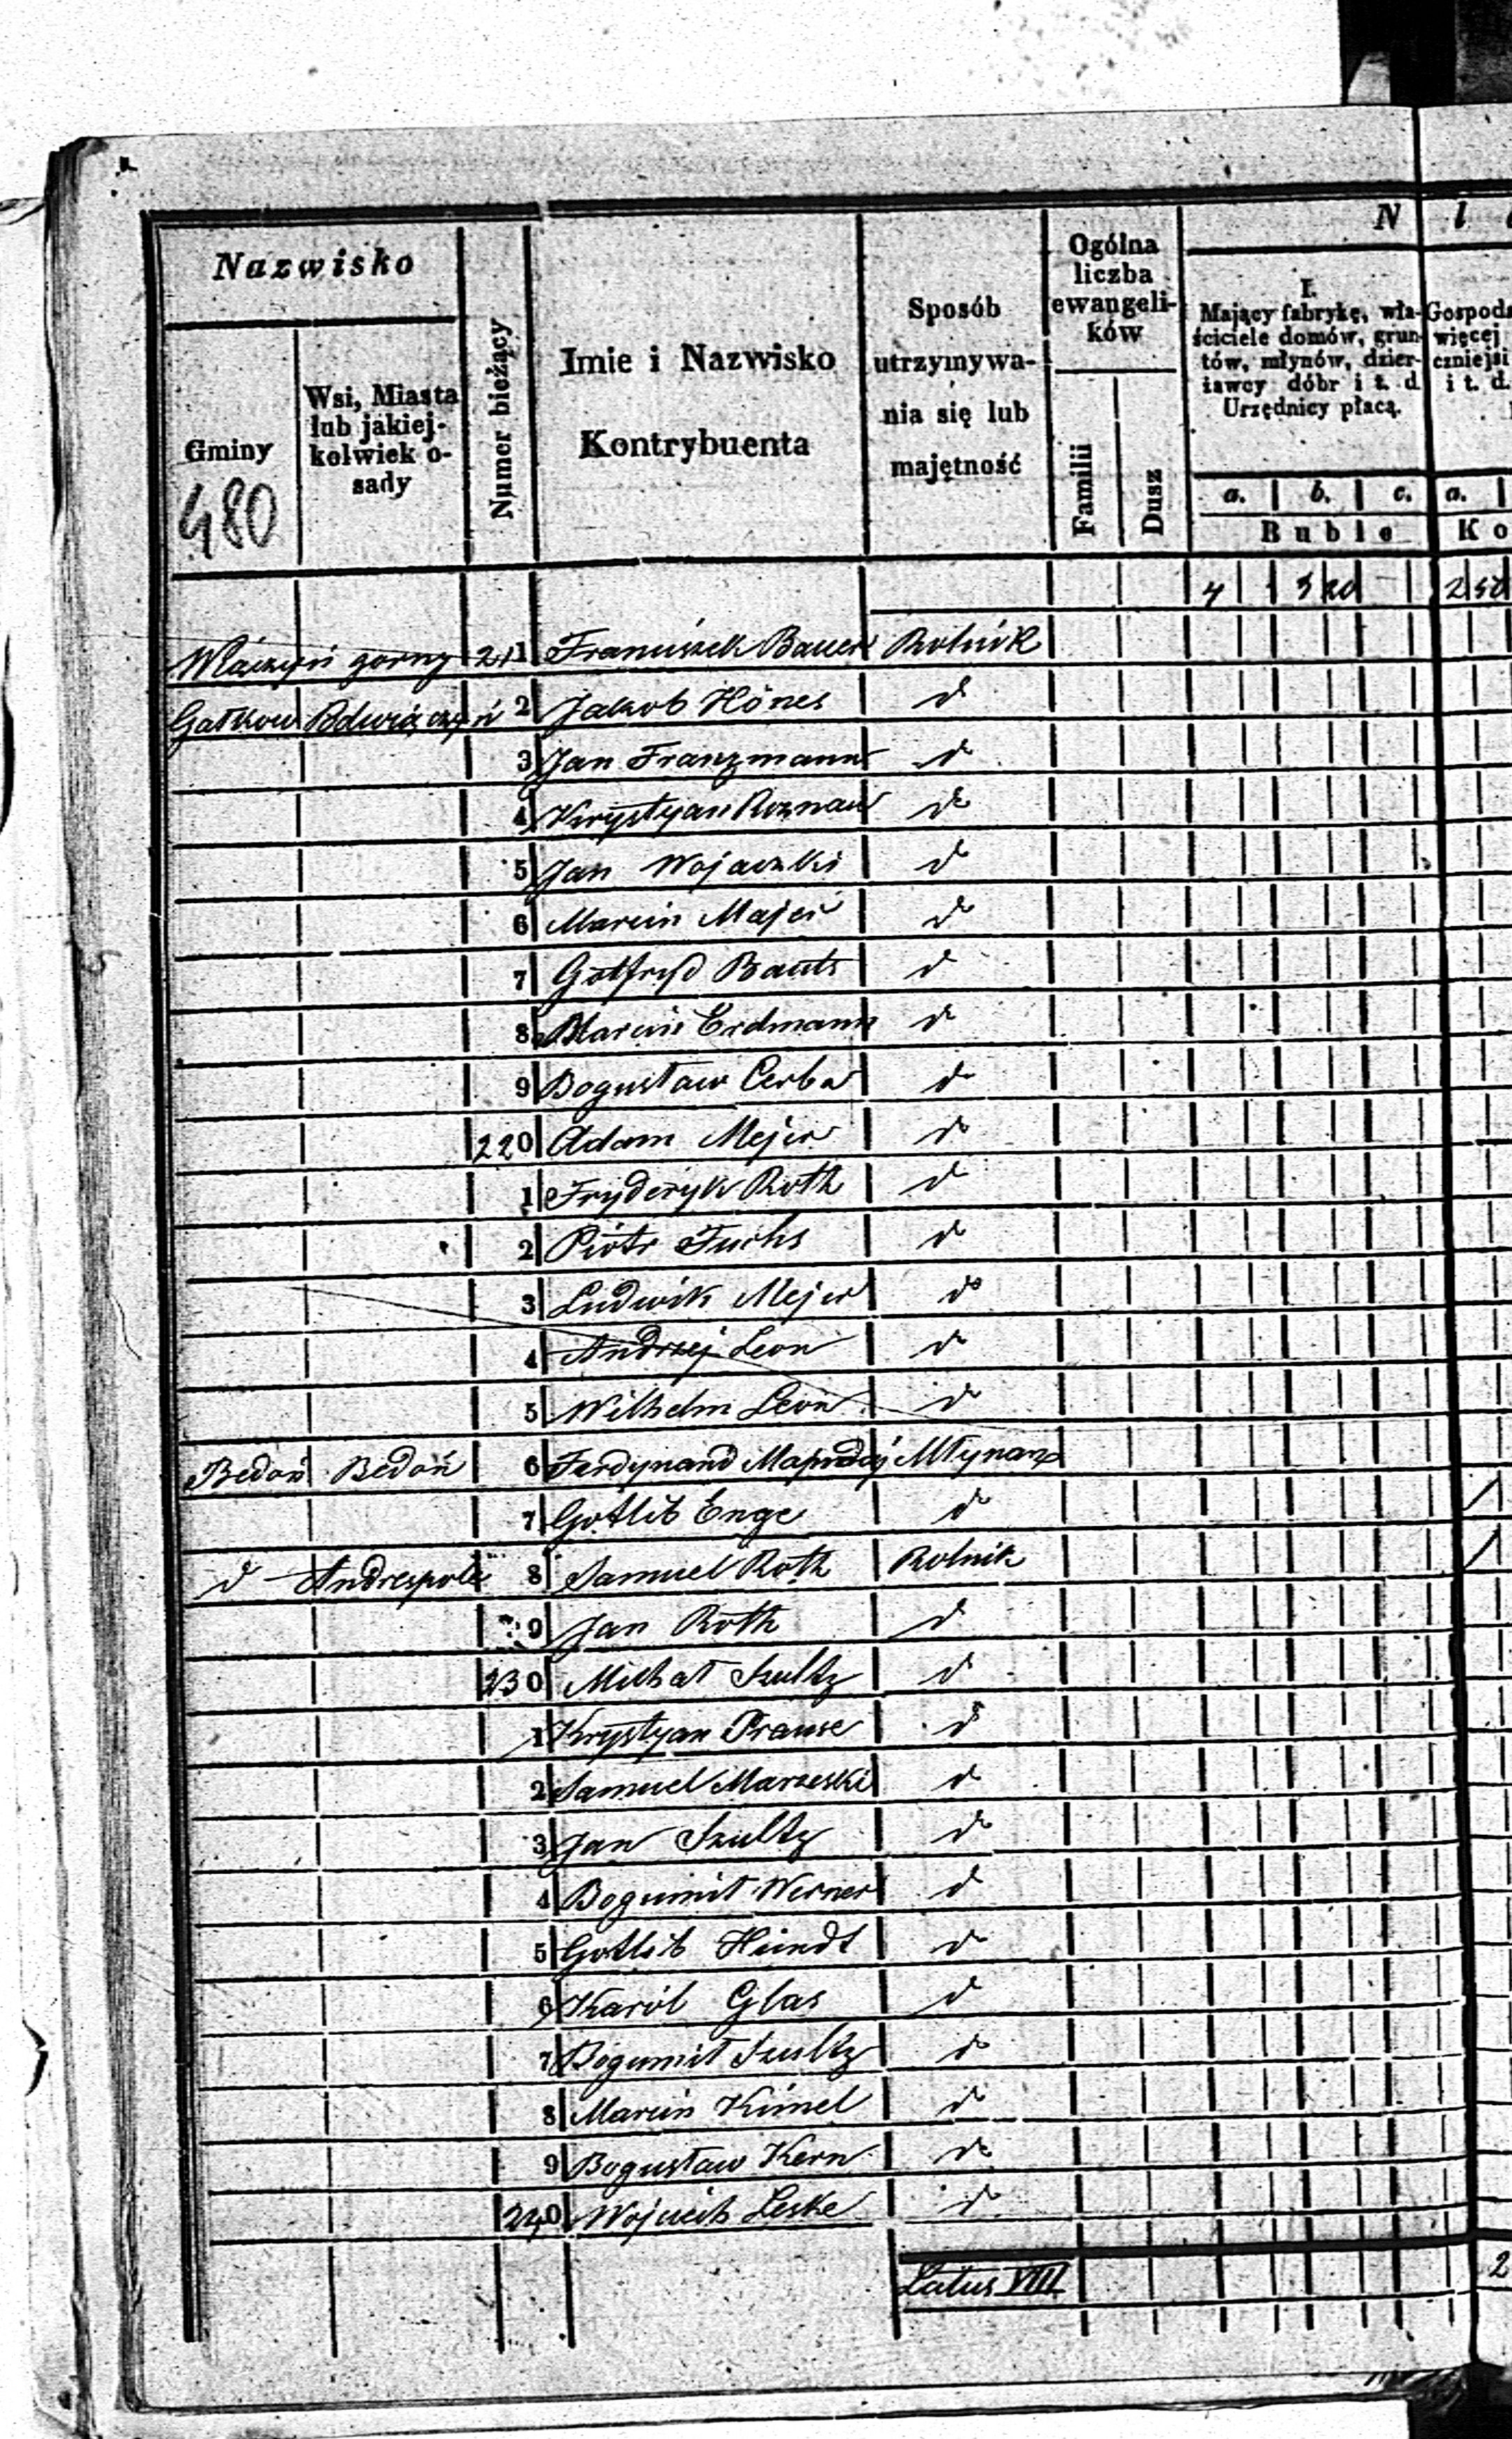 Nazwisko
Gminy
Wsi, Miasta lub jakiej-kolwiek o-sady
Numer bieżący
Imie i Nazwisko Kontrybuenta
Sposób utrzymywa-nia się lub majętność
Ogólna liczba ewangeli-ków
Familii
Dusz
N
I.
Mający fabrykę, wła-
ściciele domów, grun-
tów, młynów, dzier-
żawcy dóbr i t. d.
Urzędnicy płacą.
Gospod
więcej
czniejsi
i t. d.
a. b. c. a.
Ruble Ko
480
4 3 20 2 50
Wiączyń gorny 211 Franciszek Bauer Rolnik
Gałkow 2 Jakob Hönes d
3 Jan Franzmann d
4 Krystyan Roznau d
5 Jan Wojaczki d
6 Marcin Majer d
7 Gotfryd Bauts d
8 Marcin Erdmann d
9 Bogusław Cerba d
220 Adam Mejer d
1 Fryderyk Roth d
2 Piotr Fuchs d
3 Ludwik Mejer do
4 Andrzej Leon d
5 Wilhelm Leon d
Bedoń Bedoń 6 Ferdynand Młynarz
7 Gotlib Enge d
d Andrespole 8 Samuel Roth Rolnik
9 Jan Roth d
230 Michał Szultz d
1 Krystyan Prause d
2 Samuel Marzeski d
3 Jan Szultz d
4 Bogumił Werner d
5 Gotlib Hundt d
6 Karól Glas d
7 Bogumił Szultz d
8 Marcin Kimel d
9 Bogusław Kern d
240 Wojciech Leske d
Latus VIII 2